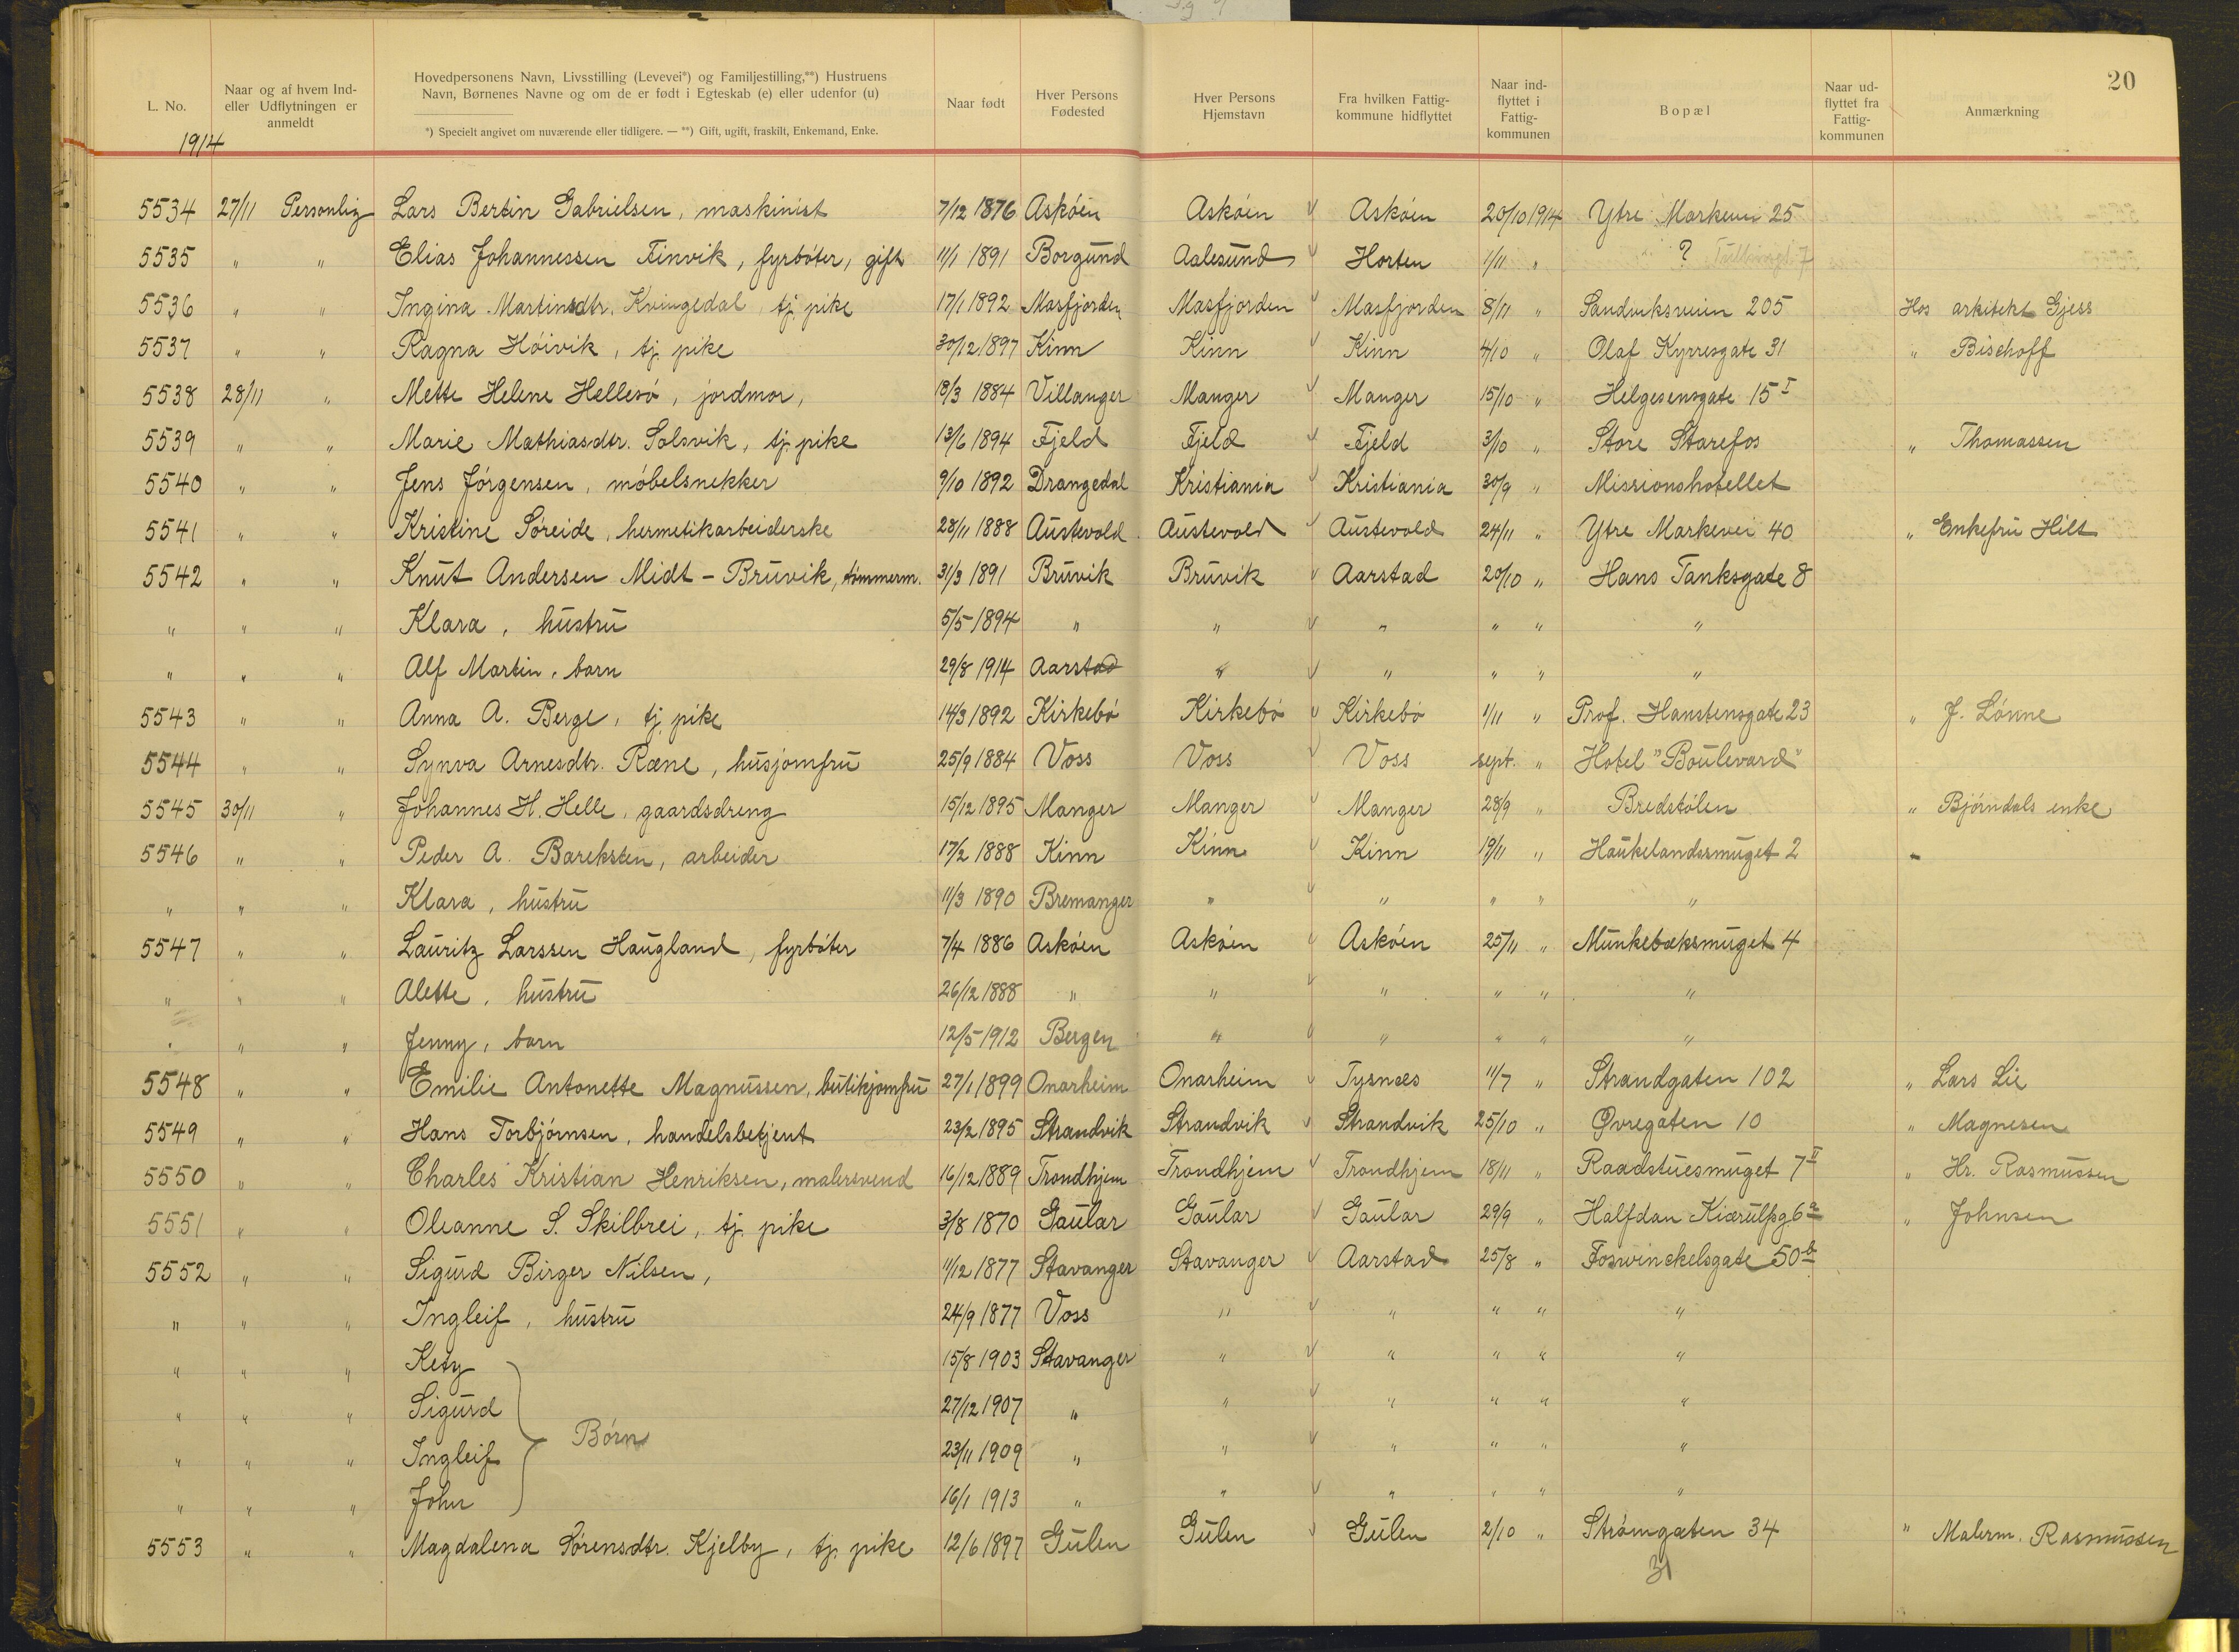 20
L. No.
Naar og af hvem Ind- eller Udflytningen er anmeldt
Hovedpersonens Navn, Livsstilling (Levevei*) og Familjestilling,**) Hustruens Navn, Børnenes Navne og om de er født i Egteskab (e) eller udenfor (u)
*) Specielt angivet om nuværende eller tidligere. — **) Gift, ugift, fraskilt, Enkemand, Enke.
Naar født
Hver Persons Fødested
Hver Persons Hjemstavn
Fra hvilken Fattig- kommune hidflyttet
Naar ind- flyttet i Fattig- kommunen
Bopæl
Naar ud- flyttet fra Fattig- kommunen
Anmærkning
1914
5534 27/11 Personlig Lars Bertin Gabrielsen, maskinist 7/12 1876 Askøen Askøen Askøen 20/10 1914 Ytre Markevei 25
5535 " " Elias Johannessen Finvik, fyrbøter, gift 11/1 1891 Borgund Aalesund Horten 1/11 " ?
5536 " " Ingina Martinsdtr. Kvingedal, tj. pike 17/1 1892 Masfjorden Masfjorden Masfjorden 8/11 " Sandviksveien 205 Hos arkitekt Gjess
5537 " " Ragna Høivik, tj. pike 30/12 1897 Kinn Kinn Kinn 4/10 " Olaf Kyrresgate 31 " Bischoff
5538 28/11 " Mette Helene Hellesø, jordmor, 18/3 1884 Villanger Manger Manger 15/10 " Helgesensgate 15 I
5539 " " Marie Mathiasdtr. Solsvik, tj. pike 13/6 1894 Fjeld Fjeld Fjeld 3/10 " Store Starefos " Thomassen
5540 " " Jens Jørgensen, møbelsnekker 9/10 1892 Drangedal Kristiania Kristiania 30/9 " Missionshotellet
5541 " " Kristine Søreide, hermetikarbeiderske 28/11 1888 Austevold Austevold Austevold 24/11 " Ytre Markevei 40 " Enkefru Hilt
5542 " " Knut Andersen Midt-Bruvik, tømmerm. 31/3 1891 Bruvik Bruvik Aarstad 20/10 " Hans Tanksgate 8
" " " Klara, hustru 5/5 1894 " " " " " "
" " " Alf Martin, barn 29/8 1914 Aarstad " " " " "
5543 " " Anna A. Berge, tj. pike 14/3 1892 Kirkebø Kirkebø Kirkebø 1/11 " Prof. Hanstensgate 23 " J. Lønne
5544 " " Synva Arnesdtr. Ræne, husjomfru 25/9 1884 Voss Voss Voss sept. " Hotel "Boulevard"
5545 30/11 " Johannes H. Helle, gaardsdreng 15/12 1895 Manger Manger Manger 28/9 " Bredstølen " Bjørndals enke
5546 " " Peder A. Bareksten, arbeider 17/2 1888 Kinn Kinn Kinn 19/11 " Haukelandssmuget 2
" " " Klara, hustru 11/3 1890 Bremanger " " " " "
5547 " " Lauritz Larssen Haugland, fyrbøter 7/4 1886 Askøen Askøen Askøen 25/11 " Munkebæksmuget 4
" " " Alette, hustru 26/12 1888 " " " " " "
" " " Jenny, barn 12/5 1912 Bergen " " " " "
5548 " " Emilie Antonette Magnussen, butikjomfru 27/1 1899 Onarheim Onarheim Tysnæs 11/7 " Strandgaten 102 " Lars Lie
5549 " " Hans Torbjørnsen, handelsbetjent 23/2 1895 Strandvik Strandvik Strandvik 25/10 " Øvregaten 10 " Magnesen
5550 " " Charles Kristian Henriksen, malersvend 16/12 1889 Trondhjem Trondhjem Trondhjem 18/11 " Raadstuesmuget 7 II " Hr. Rasmussen
5551 " " Oleanne S. Skilbrei, tj. pike 3/8 1870 Gaular Gaular Gaular 29/9 " Halfdan Kiærulfsg. 6 a " Johnsen
5552 " " Sigurd Birger Nilsen, 11/12 1877 Stavanger Stavanger Aarstad 25/8 " Foswinckelsgate 50 b
" " " Ingleif, hustru 24/9 1877 Voss " " " " "
" " " Kety 15/8 1903 Stavanger " " " " "
" " " Sigurd 27/12 1907 " " " " " "
Børn
" " " Ingleif 23/11 1909 " " " " " "
" " " John 16/1 1913 " " " " " "
5553 " " Magdalena Sørensdtr. Kjelby, tj. pike 12/6 1897 Gulen Gulen Gulen 2/10 " Strømgaten 34 " Malerm. Rasmussen
31